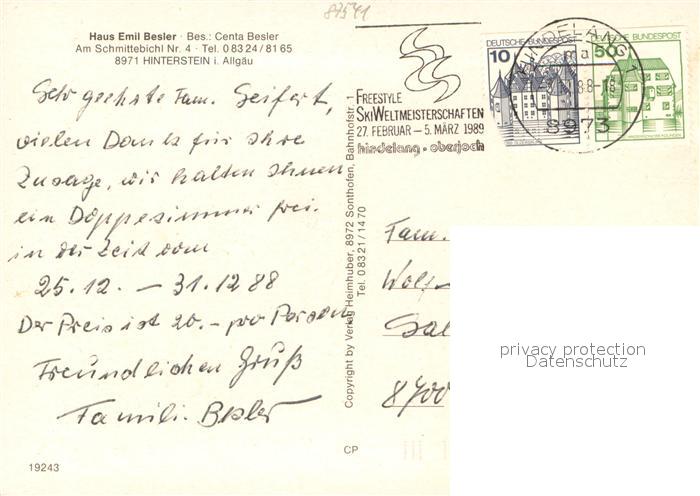 87541
Haus Emil Besler · Bes.: Centa Besler
Am Schmittebichl Nr. 4 · Tel. 0 83 24 / 81 65
8971 HINTERSTEIN i. Allgäu
Sehr geehrte Fam. Seifert,
vielen Dank für Ihre
Zusage, wir halten Ihnen
ein Doppelzimmer frei.
in der Zeit vom
25.12. – 31.12 88
Der Preis ist 20.- pro Person
Freundlichen Gruß
Famili. Besler
19243
Copyright by Verlag Heimhuber, 8972 Sonthofen, Bahnhofstr. 1
Tel. 0 83 21 / 14 70
CP
FREESTYLE
SKIWELTMEISTERSCHAFTEN
27. FEBRUAR – 5. MÄRZ 1989
hindelang · oberjoch
DEUTSCHE BUNDESPOST
10
DEUTSCHE BUNDESPOST
50
HINDELANG 1
ma
8973
Fam.
8700
privacy protection
Datenschutz